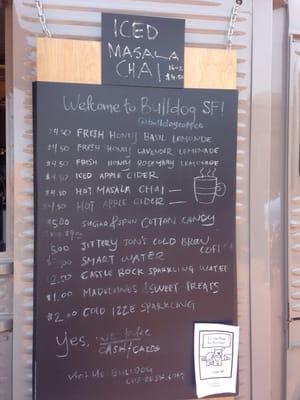 ICED
MASALA
CHAI 16oz
$4.50
Welcome to Bulldog SF!
@bulldogcoffee
$4.50 FRESH HONEY BASIL LEMONADE
$4.50 FRESH HONEY LAVENDER LEMONADE
$4.50 FRESH HONEY ROSEMARY LEMONADE
$4.50 ICED APPLE CIDER
$4.50 HOT MASALA CHAI —
$4.50 HOT APPLE CIDER —
$5.00 SUGAR & SPUN COTTON CANDY
5.00 JITTERY JON'S COLD BREW
COFFEE
SMART WATER
2.50 CASTLE ROCK SPARKLING WATER
$1.00 MADELEINES & SWEET TREATS
$2.00 COLD IZZE SPARKLING
Yes, we take
CASH/CARDS
Visit Us BULLDOG